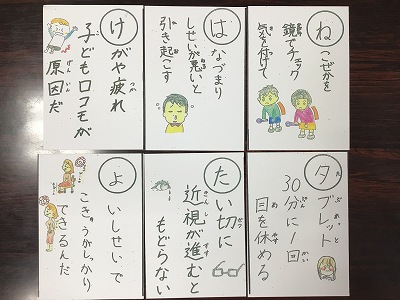 ね
こぜかを
鏡でチェック
気を付けて
は
なづまり
しせいが悪いと
引き起こす
け
がや疲れ
子どもロコモが
原因だ
タ
ブレット
30分に1回
目を休める
た
い切に
近視が進むと
もどらない
よ
いしせいで
こきゅうがしっかり
できるんだ